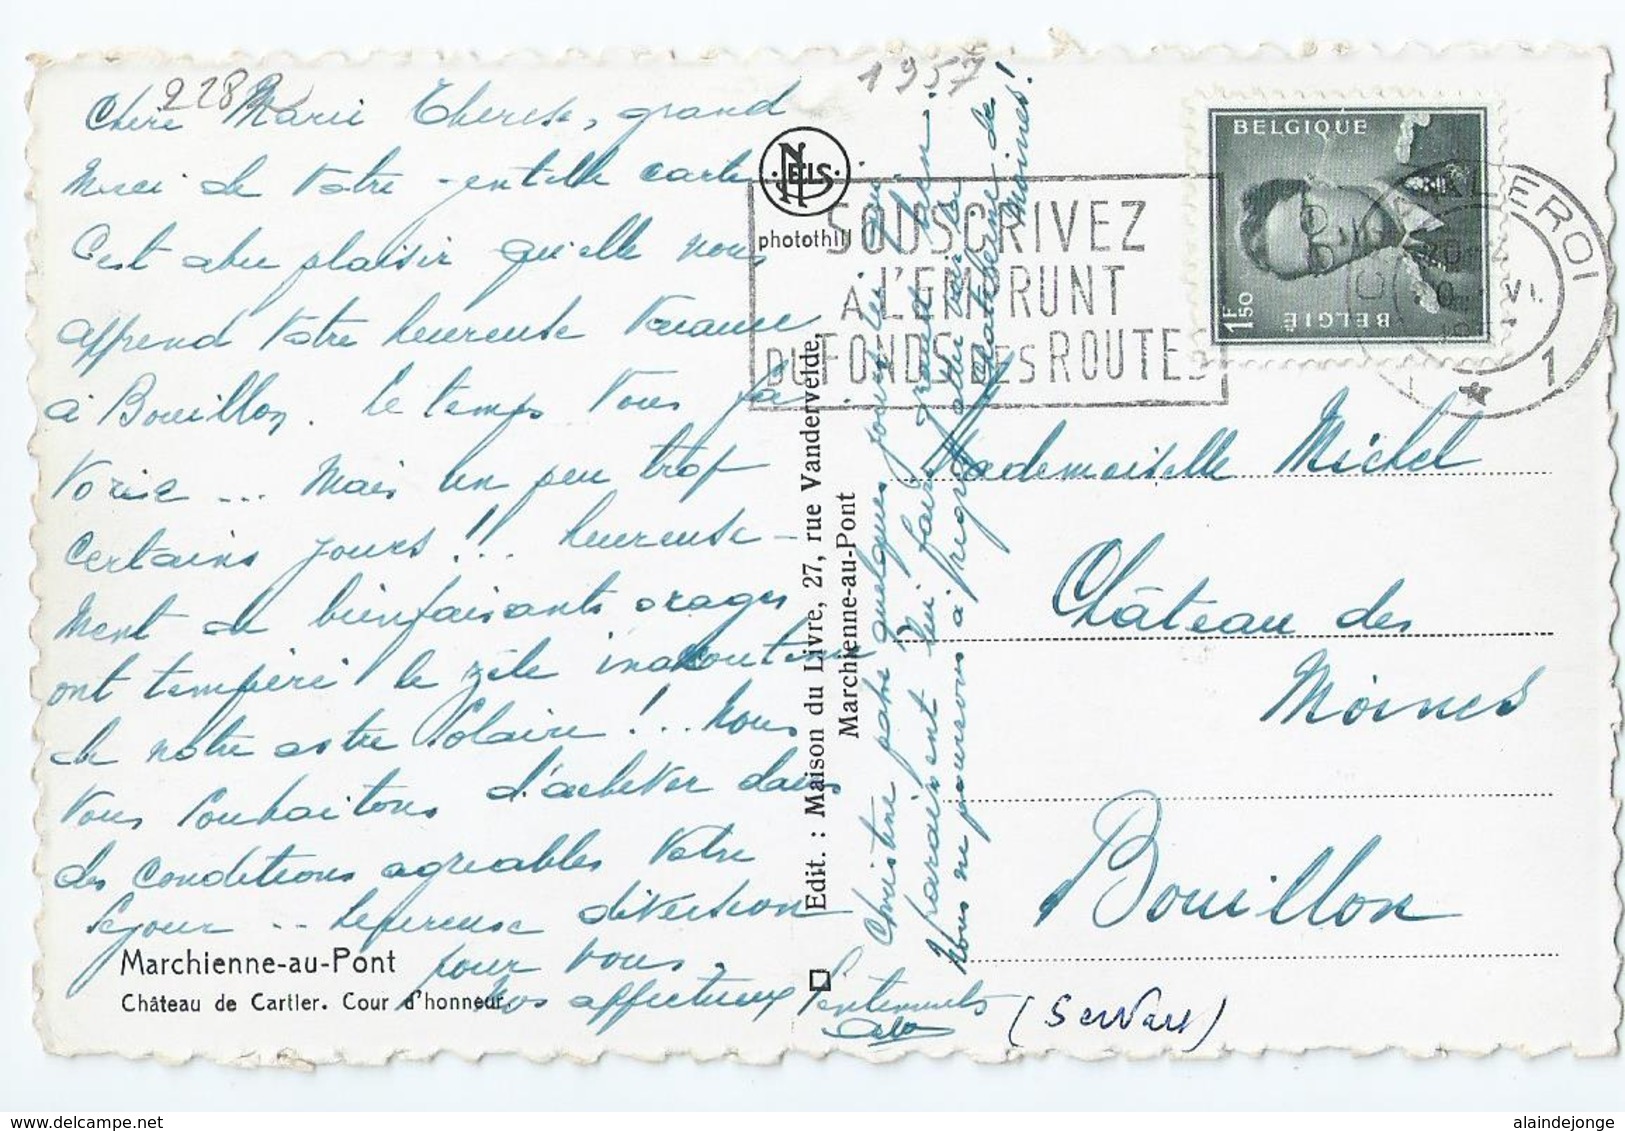 228
1957
Chère Marie Thérèse, grand
Merci de votre gentille carte
C'est avec plaisir qu'elle nous
apprend votre heureuse vacance
à Bouillon. le temps vous fa-
vorise ... Mais un peu trop
certains jours!!.. heureuse-
ment de bienfaisants orages
ont tempéré le zèle inaccoutumé
de notre astre solaire!.. Nous
vous souhaitons d'achever dans
des conditions agréables votre
séjour ... heureuse diversion
pour vous.
Nos affectueux sentiments
Marchienne-au-Pont
Château de Cartier. Cour d'honneur
NELS
photothill
Edit. : Maison du Livre, 27, rue Vandervelde,
Marchienne-au-Pont
Christine passe quelques jours
paraissent lui faire grand bien.
Nous ne pouvons
Moines!
SOUSCRIVEZ
A L'EMPRUNT
DU FONDS DES ROUTES
BELGIQUE
1F50
BELGIË
CHARLEROI
1
Mademoiselle Michel
Château des
Moines
Bouillon
(Servais)
alaindejonge